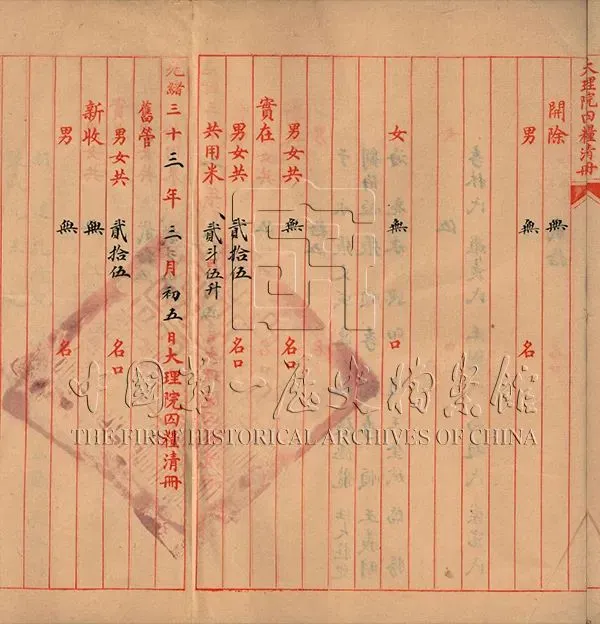 大理院囚糧清冊
開除 無
男 無 名
女 無 口
男女共 無 名口
實在
男女共 貳拾伍 名口
共用米 貳斗伍升
光緒三十三年三月初五日大理院囚糧清冊
舊管
男女共 貳拾伍 名口
新收 無
男 無 名
中国第一历史档案馆
THE FIRST HISTORICAL ARCHIVES OF CHINA